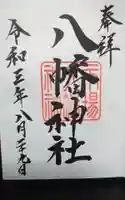 奉拝
八幡神社
令和三年八月廿九日